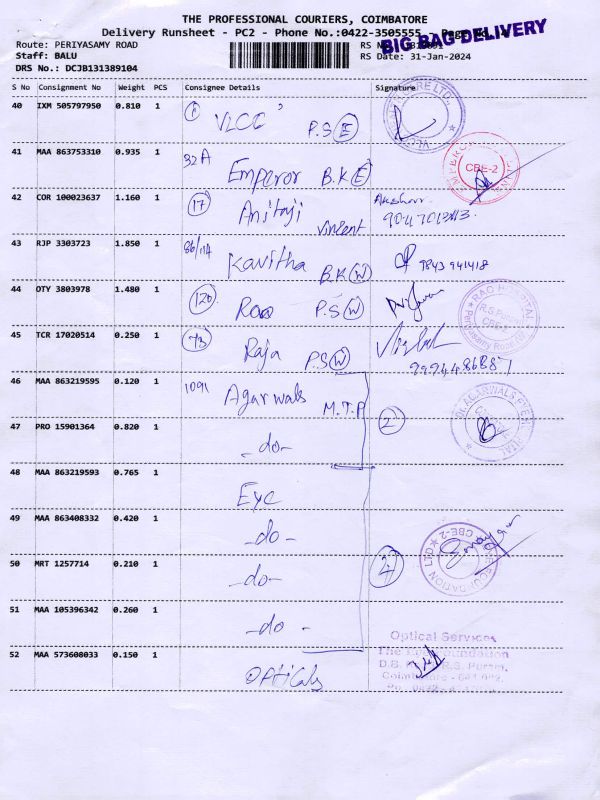 THE PROFESSIONAL COURIERS, COIMBATORE
Delivery Runsheet - PC2 - Phone No.:0422-3505555
BIG BAG DELIVERY
Route: PERIYASAMY ROAD
Staff: BALU
RS Date: 31-Jan-2024
DRS No.: DCJB131389104
S No Consignment No Weight PCS Consignee Details Signature
40 IXM 505797950 0.810 1 VLCC P.S (E)
41 MAA 863753310 0.935 1 32A Emperor B.K (E) CBE-2
42 COR 100023637 1.160 1 (17) Anitaji Vincent
43 RJP 3303723 1.850 1 Kavitha B.K (W) 9843 941418
44 OTY 3803978 1.480 1 (120) Rao P.S (W)
45 TCR 17020514 0.250 1 (73) Raja P.S (W)
46 MAA 863219595 0.120 1 1091 Agarwals M.T.P
47 PRO 15901364 0.820 1 -do- (2)
48 MAA 863219593 0.765 1 Eye
49 MAA 863408332 0.420 1 -do- CBE-2
50 MRT 1257714 0.210 1 -do- (4)
51 MAA 105396342 0.260 1 -do-
Optical Services
The Eye Foundation
52 MAA 573608033 0.150 1 Opticals